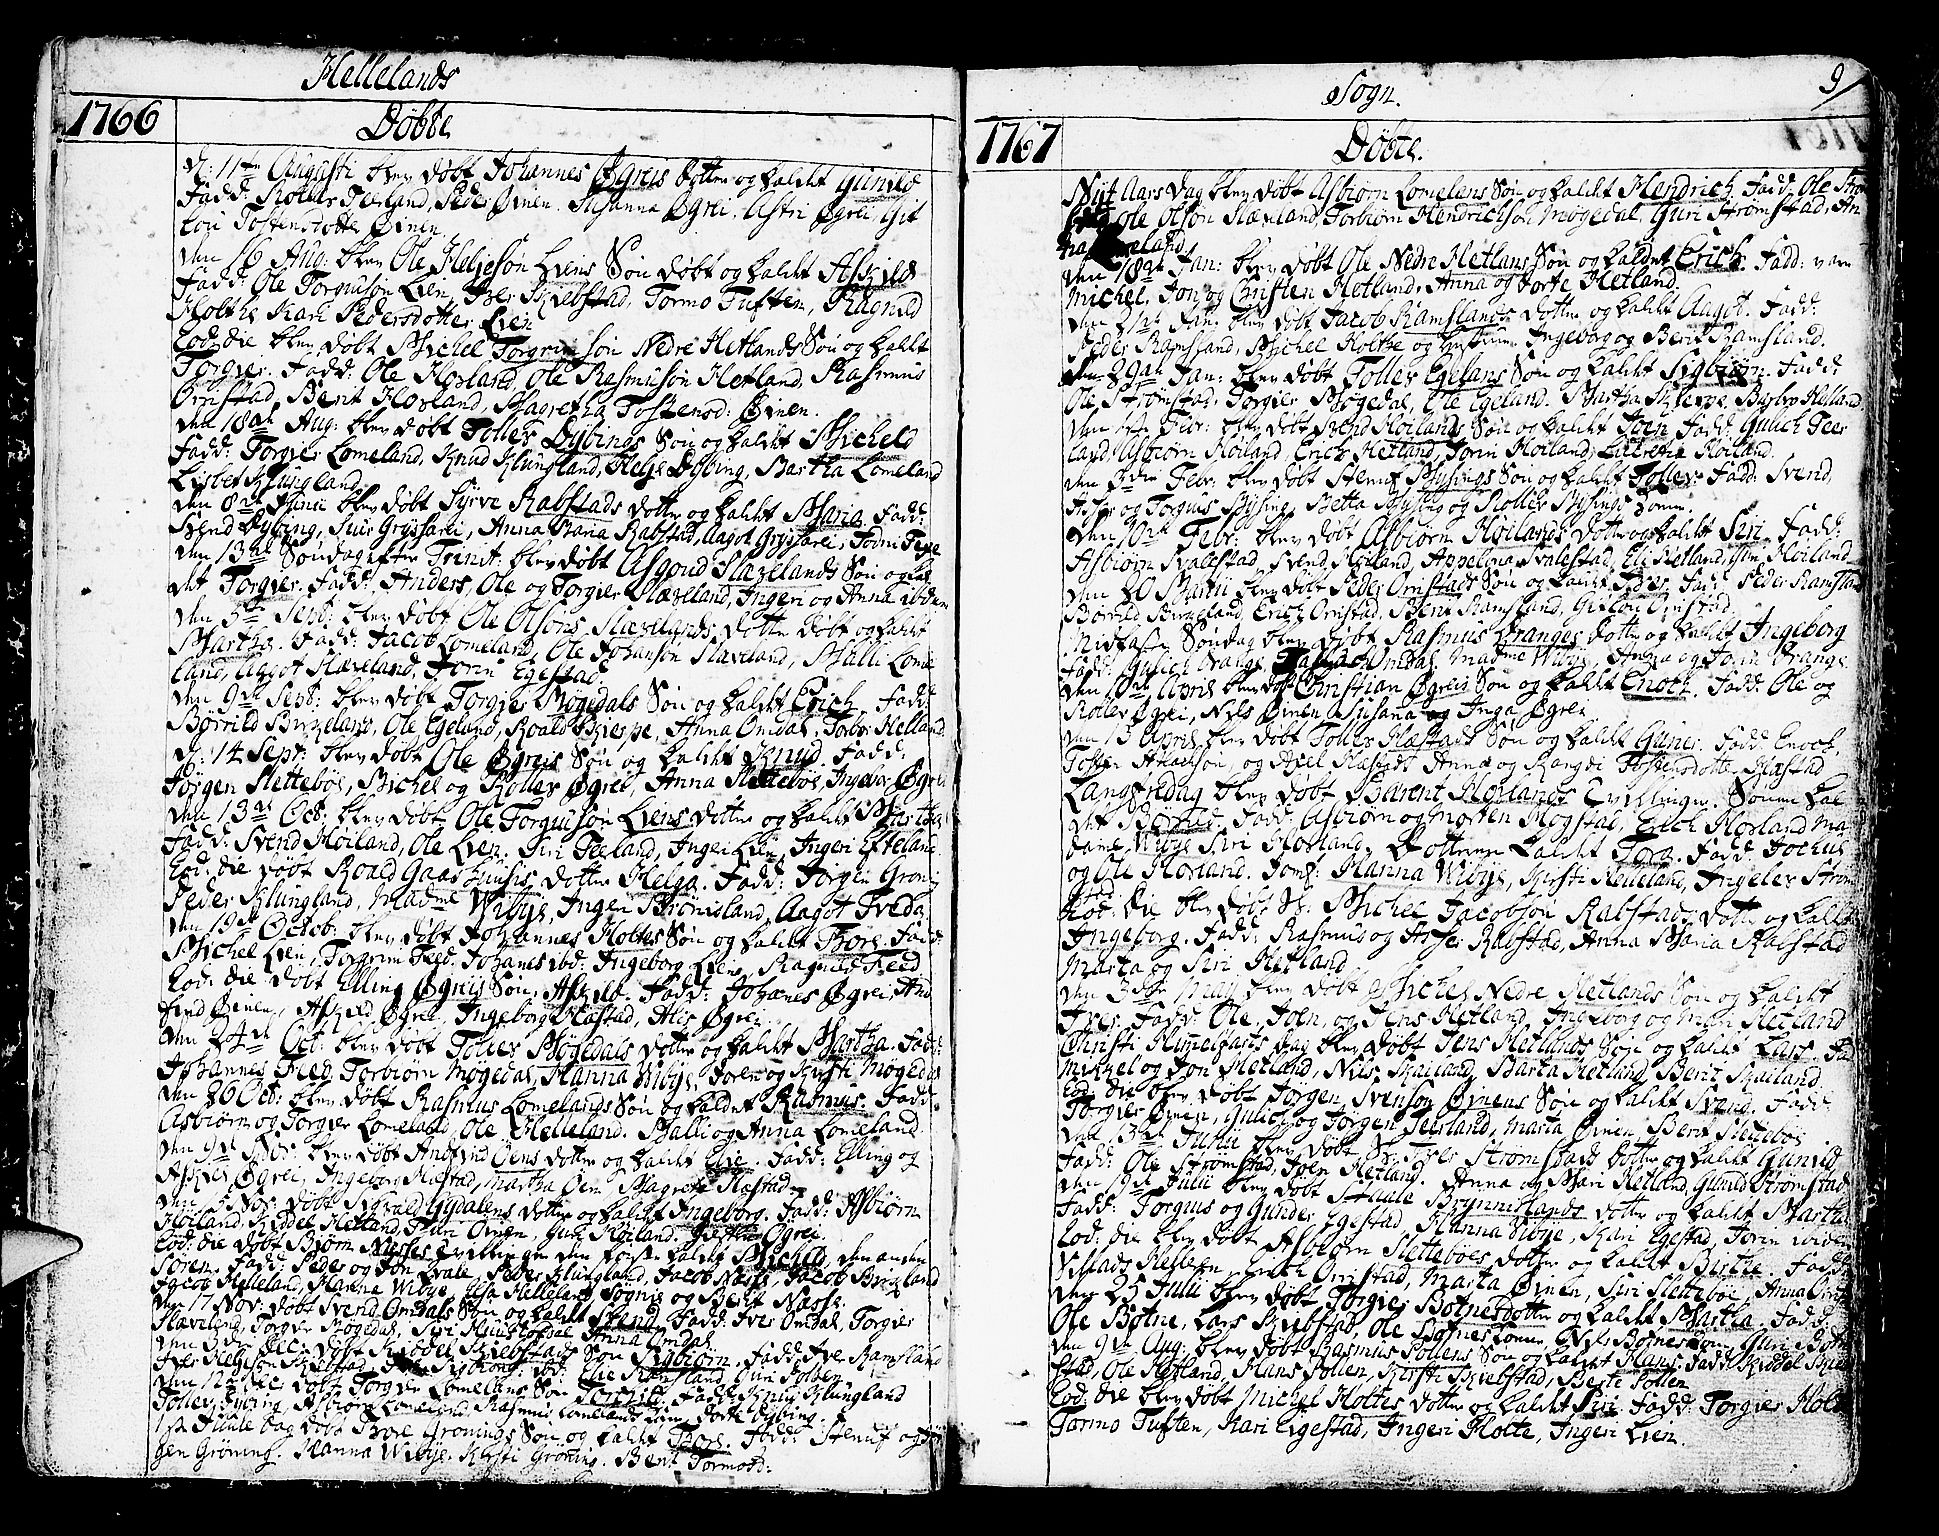 Hellelands
1766
Døbte
d: 11te Augusti blev døbt Johannes Øgreis dotter og kaldt Gunild
Fadd: Rolles Teeland, Peder Øinen. Susanna Øgrei. Astri Øgrei, Git
lou Tostensdotter Øinen.
den 16 Aug: blev Ole Heljesøn Liens Søn døbt og kaldt Askild
Fadd: Ole Torguson Lien, Iver Skiebstad, Tormo Tuften, Ragnild
Holthe Kari Pedersdotter Lien
Eod: die blev døbt Michel Torgrimsøn Nedre Hetlands Søn og kaldt
Torgier. Fadd: Ole Hovland, Ole Rasmusøn Hetland, Rasmus
Ørnstad, Berit Hovland, Magretha Tostensd: Øinen.
den 18de Aug: blev døbt Tolles Dybings Søn og kaldt Micheld
Fadd: Torgier Lomeland, Knud Klungland, Helje Dybing, Martha Lomeland
Lisbet Klungland.
den 8de Junii blev døbt Syrve Rabstads dotter og kaldt Maria. Fadd:
Svend Dybing, Siur Gryssærei, Anna Maria Rabstad, Aagot Gryssærei,
den 13de Søndag efter Trinit: blev døbt Asgoud Slæzelands Søn og kal
det Torgier. Fadd: Anders, Ole og Torgier Slæveland, Ingeri og Anna ibdem
den 5te Sept: blev døbt Ole Olsons Slævelands dotter døbt og kaldt
Martha. Fadd: Jacob Lomeland, Ole Johansøn Slæveland, Malli Lome
land, Aagot Slæveland, Torin Egestad.
den 9de Sept: blev døbt Torgier Mögedals Søn og kaldt Erich. Fadd:
Borrild Birkeland, Ole Egeland, Roald Skierpe, Anna Omdal, Torbor Helland
d: 14 Sept: blev døbt Ole Øgreis Søn og kaldt Knud. Fadd:
Jørgen Slettebøe, Michel og Rolles Øgrei, Anna Slettebøe, Ingebor Øgrei
den 13de Oct: blev døbt Ole Torgusøn Liens dotter og kaldt Martha
Fadd: Svend Høiland, Ole Lien. Siri Teeland, Ingeri Lien, Ingeri Eftelane
Eod: die døbt Roald Gaashuusis dotter Helga. Fadd: Jørgen Grøni
Peder Klungland, Madme Wibye, Ingeri Brønisland, Aagot Tveda
den 19de Octob: blev døbt Johannes Holtes Søn og kaldt Tore. Fadd:
Michel Lien, Torgrim Feed: Johanes ibd: Ingeborg Lien, Ragnild Feed
Eod: die døbt Elling Øgreis Søn, Askild. Fadd: Johanes Øgrei, And
find Øinen, Askild Øgrei, Ingeborg Hæstad, Alis Øgrei
den 24de Oct: blev døbt Tolles Mögedals dotter og kaldt Martha. Fadd:
Johannes Feed, Torbiørn Mögedal, Hanna Wibye, Toren og Kirsti Mögedal
den 26 Oct: blev døbt Rasmus Lomelands Søn og kaldet Rasmus. Fadd:
Asbiørn og Torgier Lomeland, Ole Helleland. Malli og Anna Lomeland
den 9de Nov: blev døbt Andfind Oens dotter og kaldt Elie. Fadd: Elling og
Askild Øgrei, Ingeborg Hæstad, Martha Oen, Magrete Hæstad
den 15 Nov: døbt Sigvald Gydalens dotter og kaldt Ingeborg. Fadd: Asbiørn
Høiland, Kiddel Hetland, Guri Øinen, Guri Høiland. Gietlou Øgrei.
Eod: die døbt Biørn Nesses tvillinger den første kaldt Michel, den anden
Søren. Fadd: Peder og Jon Qvale, Peder Klungland, Jacob Nesse, Jacob Birkeland
Jacob Helleland, Hanna Wibye, Else Helleland, Sognis og Berit Næsse.
den 17 Nov: døbt Svend Omdals Søn og kaldt Svend. Fadd: Iver Omdal, Torgier
Slæveland, Torgier Mögedal, Siri Anna Omdal.
den 3de Dec: døbt Kiddel Skiebstads Søn Sigbiørn. Fadd: Iver Ramsland
Iver Heljeson Skiebstad, ibd: Elie Ramsland, Guri Pollen
den 12te Dec: døbt Torgier Lomelands Søn Torkild. Fadd: Knud Klungland
Tolles Dybing, Asbiørn Lomeland, Rasmus Lomelands kone, Dorte Dybing.
1ste Juule dag døbt Tore Grønings Søn og kaldt Tore. Fadd: Stenuf og Jør
gen Grøning. Hanna Wibye. Kirsti Grøning. Berit Tormod:
Sogn.
9
1767
Døbte.
Nyt Aars dag blev døbt Asbiørn Lomelens Søn og kaldt Hendrich. Fadd: Ole Strøm
stad, Ole Olson Slævland, Torbiørn Hendrichsøn Mögedal, Guri Strømstad, An
na land.
den 18de Jan: blev døbt Ole Nedre Hetlans Søn og kaldet Erich. Fadd: vare
Michel, Jon og Christen Hetland, Anna og Torte Hetland.
den 21de Jan: blev døbt Jacob Ramslands dotter og kaldt Aagot. Fadd:
Peder Ramsland, Michel Holthe og hustrue, Ingeborg og Berit Ramsland.
den 29de Jan: blev døbt Tolles Egelans Søn og kaldt Sigbiørn. Fadd:
Ole Strømstad, Torgier Mögedal, Ole Egeland. Martha Skierpe, Helland
den Febr: blev døbt Svend Høilands Søn og kaldt Joen. Fadd: Gulich Tees
land, Asbiørn Høiland, Erich Hetland, Torin Høiland, Høiland.
den 3die Febr: blev døbt Stenuf Bysings Søn og kaldt Tolles. Fadd: Svend,
Asser og Torgius Bysing, Betta Bysing og Rolles Bysings kone.
den 10de Febr: blev døbt Asbiørn Høilands dotter og kaldt Siri. Fadd:
Asbiørn Svalestad, Svend Høiland, Appelona Svalestad, Eli Hetland, Høiland
den 20 Martii blev døbt Peder Ornstads Søn og kaldt Iver. Fad: Peder Ramsland
Borrild Birkeland, Erich Ornstad, Berit Ramsland, Gislou Ornstad.
Midfaste Søndag blev døbt Rasmus Orangss dotter og kaldt Ingeborg
Fadd: Gulich Orangs, Omdal, Madme Wibye, Anna og Torin Orangs
den 10de April blev døbt Christian Øgreis Søn og kaldt Enoch. Fadd: Ole og
Rolles Øgrei, Niels Øinen, Susana og Inga Øgrei
den 13 April blev døbt Tolles Hæstads Søn og kaldt Guner. Fadd: Enoch,
Tosten og Axel Hæstad, Anna og Rangdi Tostensdotter Hæstad
Langfredag blev døbt Berent Hovlands Tvillinger. Sønen kal
det Borrild. Fadd: Asbiørn og Morten Mogstad, Erich Hovland, Ma
dame Wibye, Siri Hovland. Dotteren kaldt Tora. Fadd: Jochus
og Ole Hovland. Jomf: Hanna Wibye, Kirsti Helleland, Ingeler Strøm
sted.
Eod: die blev døbt Michel Jacobsøn Rabstads dotter og kaldt
Ingeborg. Fadd: Rasmus og Asser Rabstad, Anna Maria Rabstad
Marta og Siri Hetland
den 3die May blev døbt Michel Nedre Hetlands Søn og kaldt
Iver. Fadd: Ole, Joen, og Jens Hetland, Ingeborg og Mari Hetland
Christi Himelfarts dag blev døbt Jens Hetlands Søn og kaldt Lars. Fad
Mikkel og Jon Hetland, Niels Skailand, Marta Hetland, Berit Skailand.
Eod: die blev døbt Jørgen Svenson Øinens Søn og kaldt Svend. Fadd:
Torgier Øinen, Gulich og Jørgen Teerland, Marta Øinen, Berit Slettebøe
den 13de Junii blev døbt Sr. Iver Strømstads dotter og kaldt Gunild
Fadd: Ole Strømstad, Joen Hetland. Anna og Mari Hetland, Gunild Strømstad
den 19de Julii blev døbt Staale Brynnislands dotter og kaldt Martha
Fadd: Torgius og Gunder Egestad, Hanna Wibye, Kari Egestad, Torin ibidem
Eod: die blev døbt Asbiørn Slettebøes dotter og kaldt Birthe. Fadd:
Villads Helleren, Erich Orrestad, Marta Øinen, Siri Slettebøe, Anna
den 25 Julii blev døbt Torgier Botnes dotter og kaldt Martha. Fadd:
Ole Botne, Lars Skiebstad, Ole Botnes kone, Guri Botne
den 9de Aug: blev døbt Rasmus Pollens Søn og kaldt Hans. Fadd: Kiddel Skieb
stad, Ole Hetland, Hans Pollen, Kirsti Skiebstad, Berte Pollen
Eod: die blev døbt Michel Holtes dotter og kaldt Siri. Fadd: Torgier Holte
Tormo Tuften, Kari Eigestad, Ingeri Holte, Ingeri Lien.